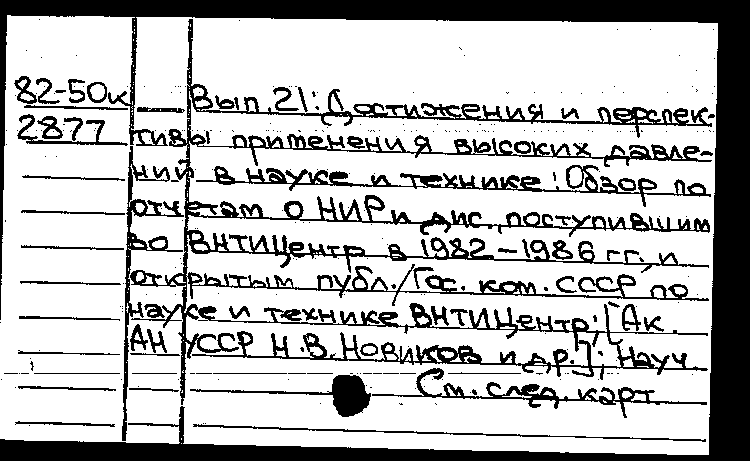 82-50к
2877
Вып.21: Достижения и перспек-
тивы применения высоких давле-
ний в науке и технике: Обзор по
отчетам о НИР и дис., поступившим
во ВНТИЦентр в 1982-1986 гг., и
открытым публ./Гос. ком. СССР по
науке и технике, ВНТИЦентр; [Ак.
АН УССР Н.В. Новиков и др.]; Науч.
См. след. карт.